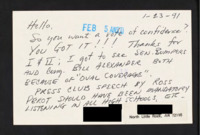 1-23-91
Hello,
FEB 5 1991
So you want a vote of confidence?
YOU GOT IT!!! Thanks for
I & II; I got to see SEN. BUMPERS
AND Cong. BILL ALEXANDER BOTH
BECAUSE OF "DUAL COVERAGE".
PRESS CLUB SPEECH BY ROSS
PEROT SHOULD HAVE BEEN MANDATORY
LISTENING IN ALL HIGH SCHOOLS, ETC.
North Little Rock, AR